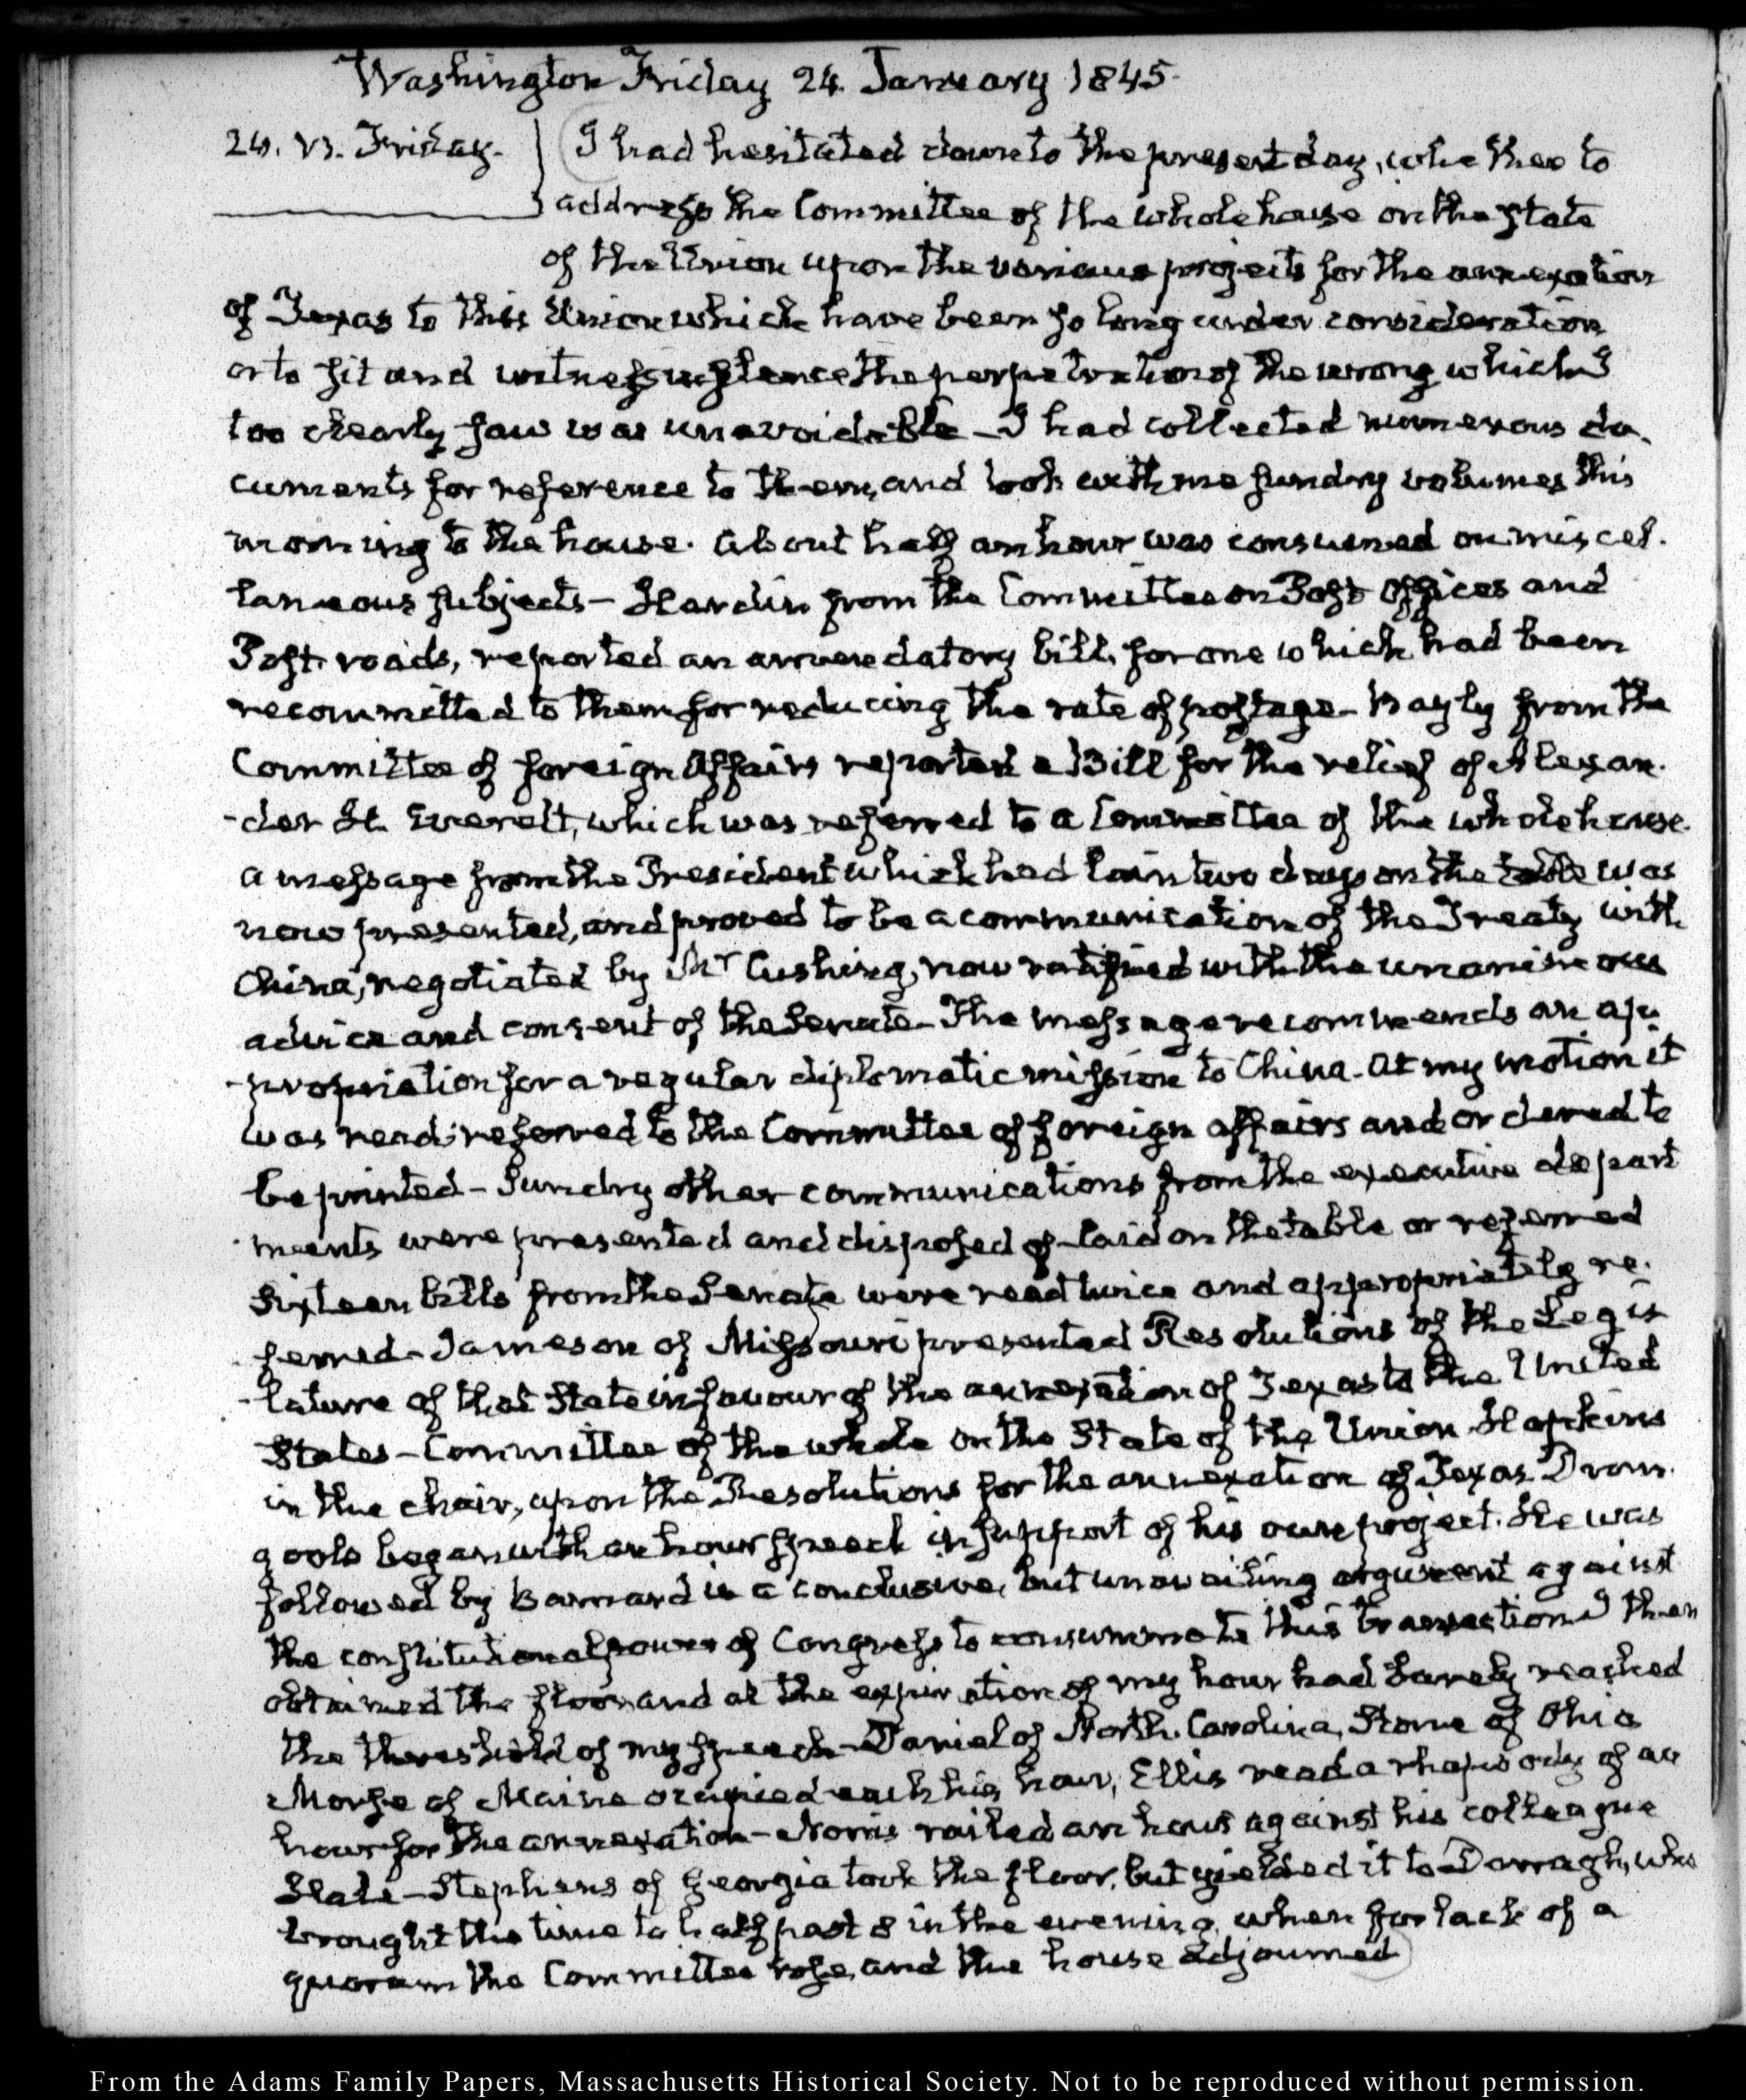 Washington Friday 24. January 1845.
24. VI. Friday.
I had hesitated down to the present day, whether to
address the Committee of the whole house on the State
of the Union upon the various projects for the annexation
of Texas to this Union which have been so long under consideration
or to sit and witness in silence the perpetration of the wrong which I
too clearly saw was unavoidable – I had collected numerous do-
cuments for reference to them, and took with me sundry volumes this
morning to the house. About half an hour was consumed on miscel-
laneous subjects – Hardin from the Committee on Post Offices and
Post-roads, reported an amendatory bill, for one which had been
recommitted to them for reducing the rate of postage – Bayly from the
Committee of foreign Affairs reported a Bill for the relief of Alexan-
-der H. Everett, which was referred to a Committee of the whole house.
a message from the President which had lain two days on the table was
now presented, and proved to be a communication of the Treaty with
China, negotiated by Mr Cushing, now ratified with the unanimous
advice and consent of the Senate – The message recommends an ap-
-propriation for a regular diplomatic mission to China – At my motion it
was read, referred to the Committee of foreign affairs and ordered to
be printed – Sundry other communications from the executive depart
ments were presented and disposed of – laid on the table or referred
Sixteen bills from the Senate were read twice and appropriately re-
ferred – Jameson of Missouri presented Resolutions of the Legis
-lature of that State in favour of the annexation of Texas to the United
States – Committee of the whole on the State of the Union. Hopkins
in the chair, upon the Resolutions for the annexation of Texas. Drom-
goole began with an hour speech in support of his own project. He was
followed by Barnard in a conclusive, but unavailing argument against
the constitutional power of Congress to consummate this transaction I then
obtained the floor, and at the expiration of my hour had barely reached
the threshold of my speech – Daniel of North-Carolina, Stone of Ohio
Morse of Maine occupied each his hour, Ellis read a rhapsody of an
hour for the annexation – Norris railed an hour against his colleague
Hale – Stephens of Georgia took the floor, but yielded it to Darragh, who
brought the time to half past 8 in the evening, when for lack of a
quorum the Committee rose, and the house adjourned
From the Adams Family Papers, Massachusetts Historical Society. Not to be reproduced without permission.